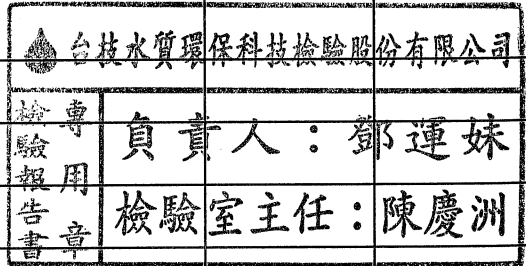 台技水質環保科技檢驗股份有限公司
檢驗報告書
專用章
負責人：鄧運妹
檢驗室主任：陳慶洲